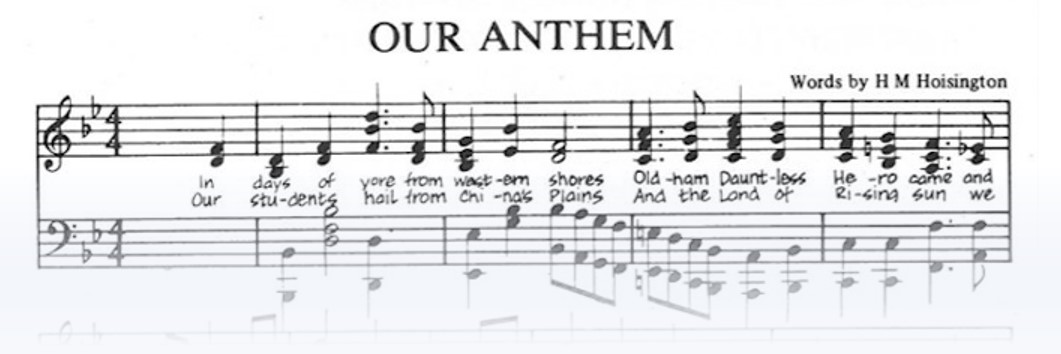 OUR ANTHEM
Words by H M Hoisington
In days of yore from west-ern shores Old-ham Daunt-less He-ro came and
Our stu-dents hail from Chi-na's Plains And the Land of Ri-sing sun we